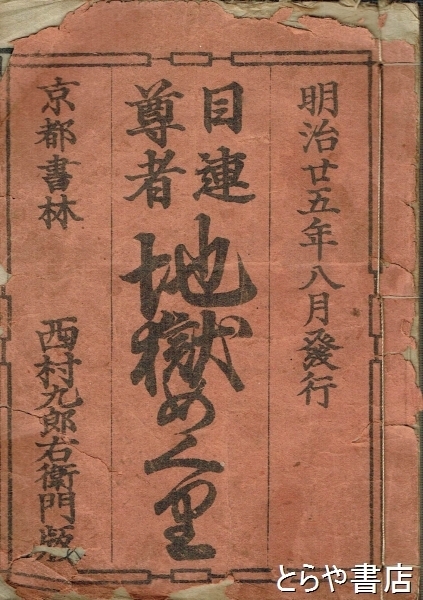 明治廿五年八月發行
目連
尊者
地獄めくり
京都書林 西村九郎右衛門版
とらや書店